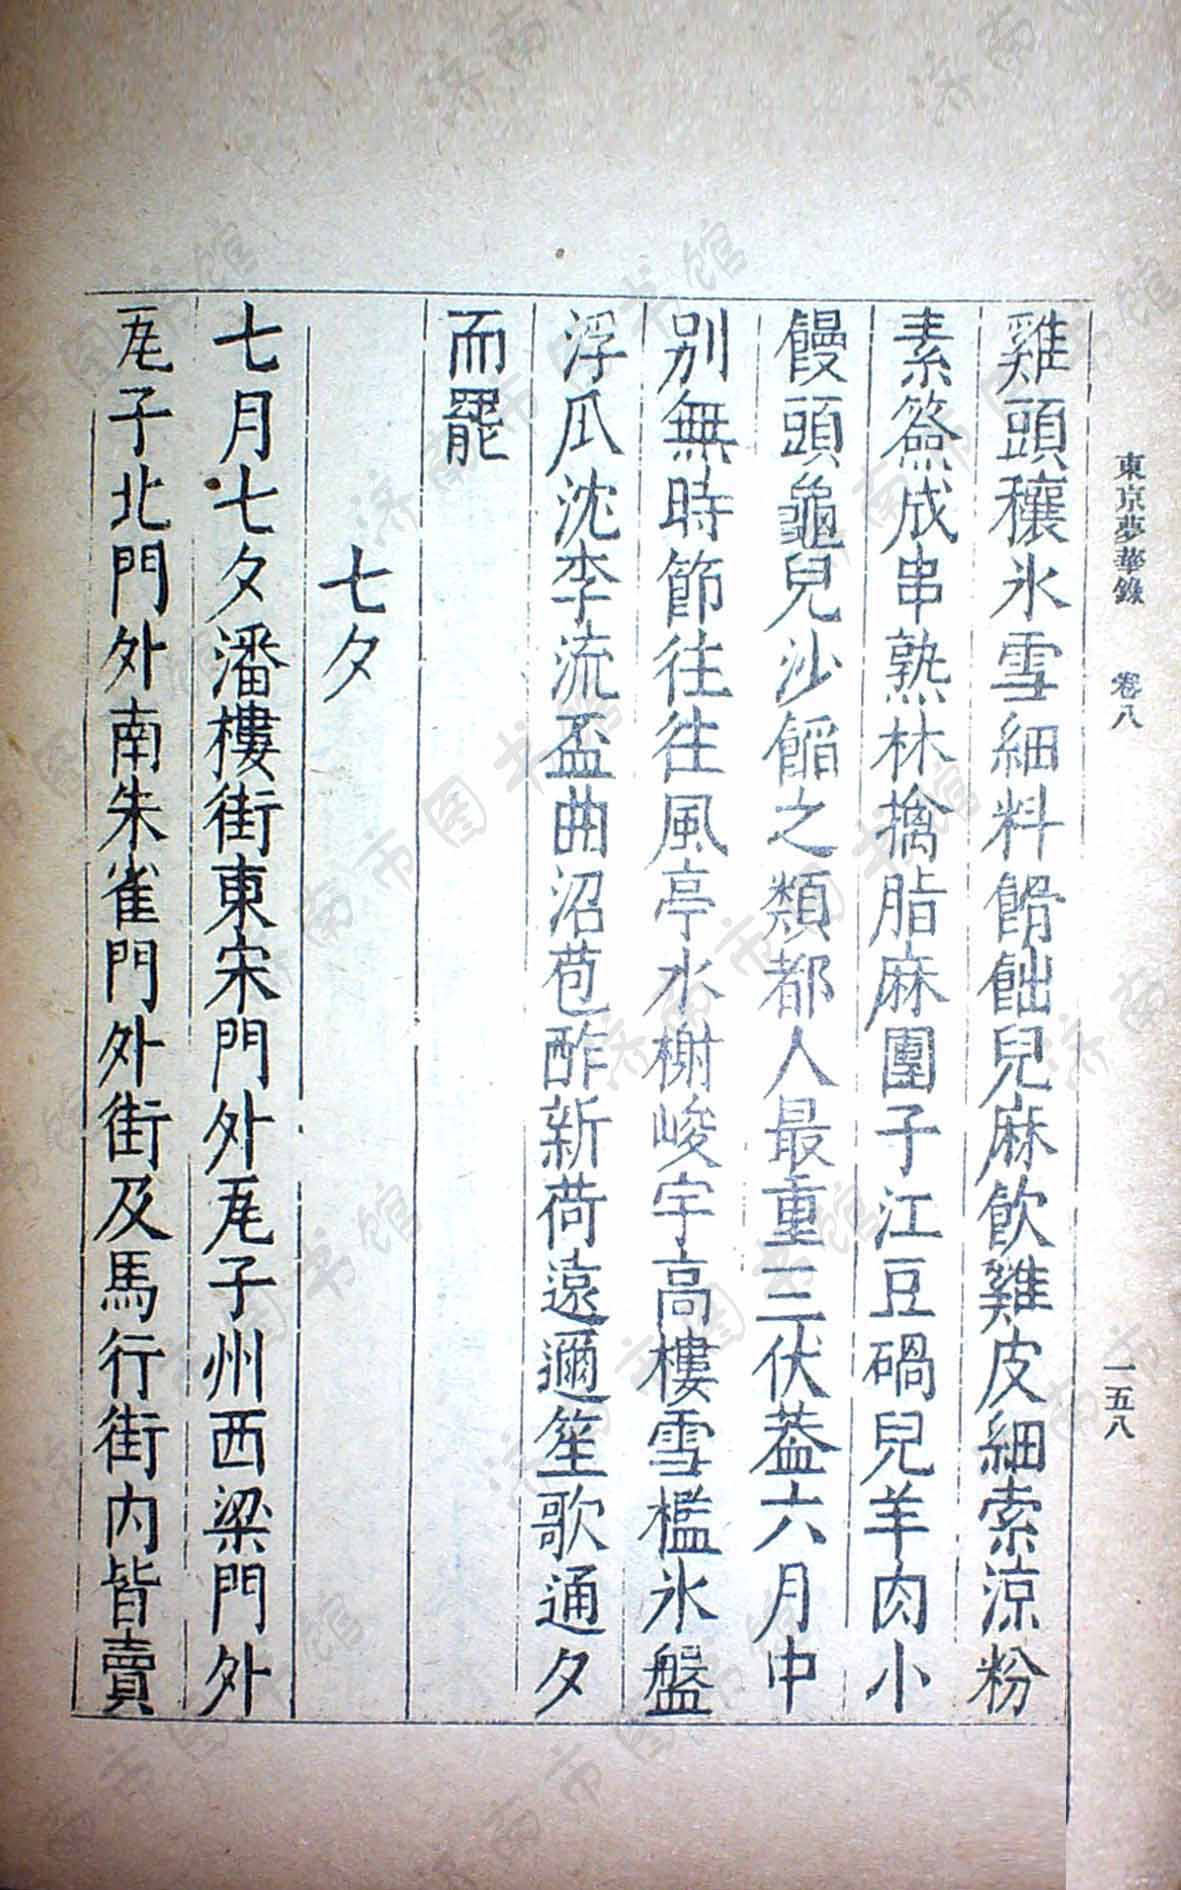 東京夢華錄　卷八　一五八
雞頭穰氷雪細料餶飿兒麻飲雞皮細索涼粉
素簽成串熟林擒脂麻團子江豆碢兒羊肉小
饅頭龜兒沙餡之類都人最重三伏葢六月中
別無時節往往風亭水榭峻宇高樓雪檻氷盤
浮瓜沈李流盃曲沼苞酢新荷遠邇笙歌通夕
而罷
七夕
七月七夕潘樓街東宋門外瓦子州西梁門外
瓦子北門外南朱雀門外街及馬行街內皆賣